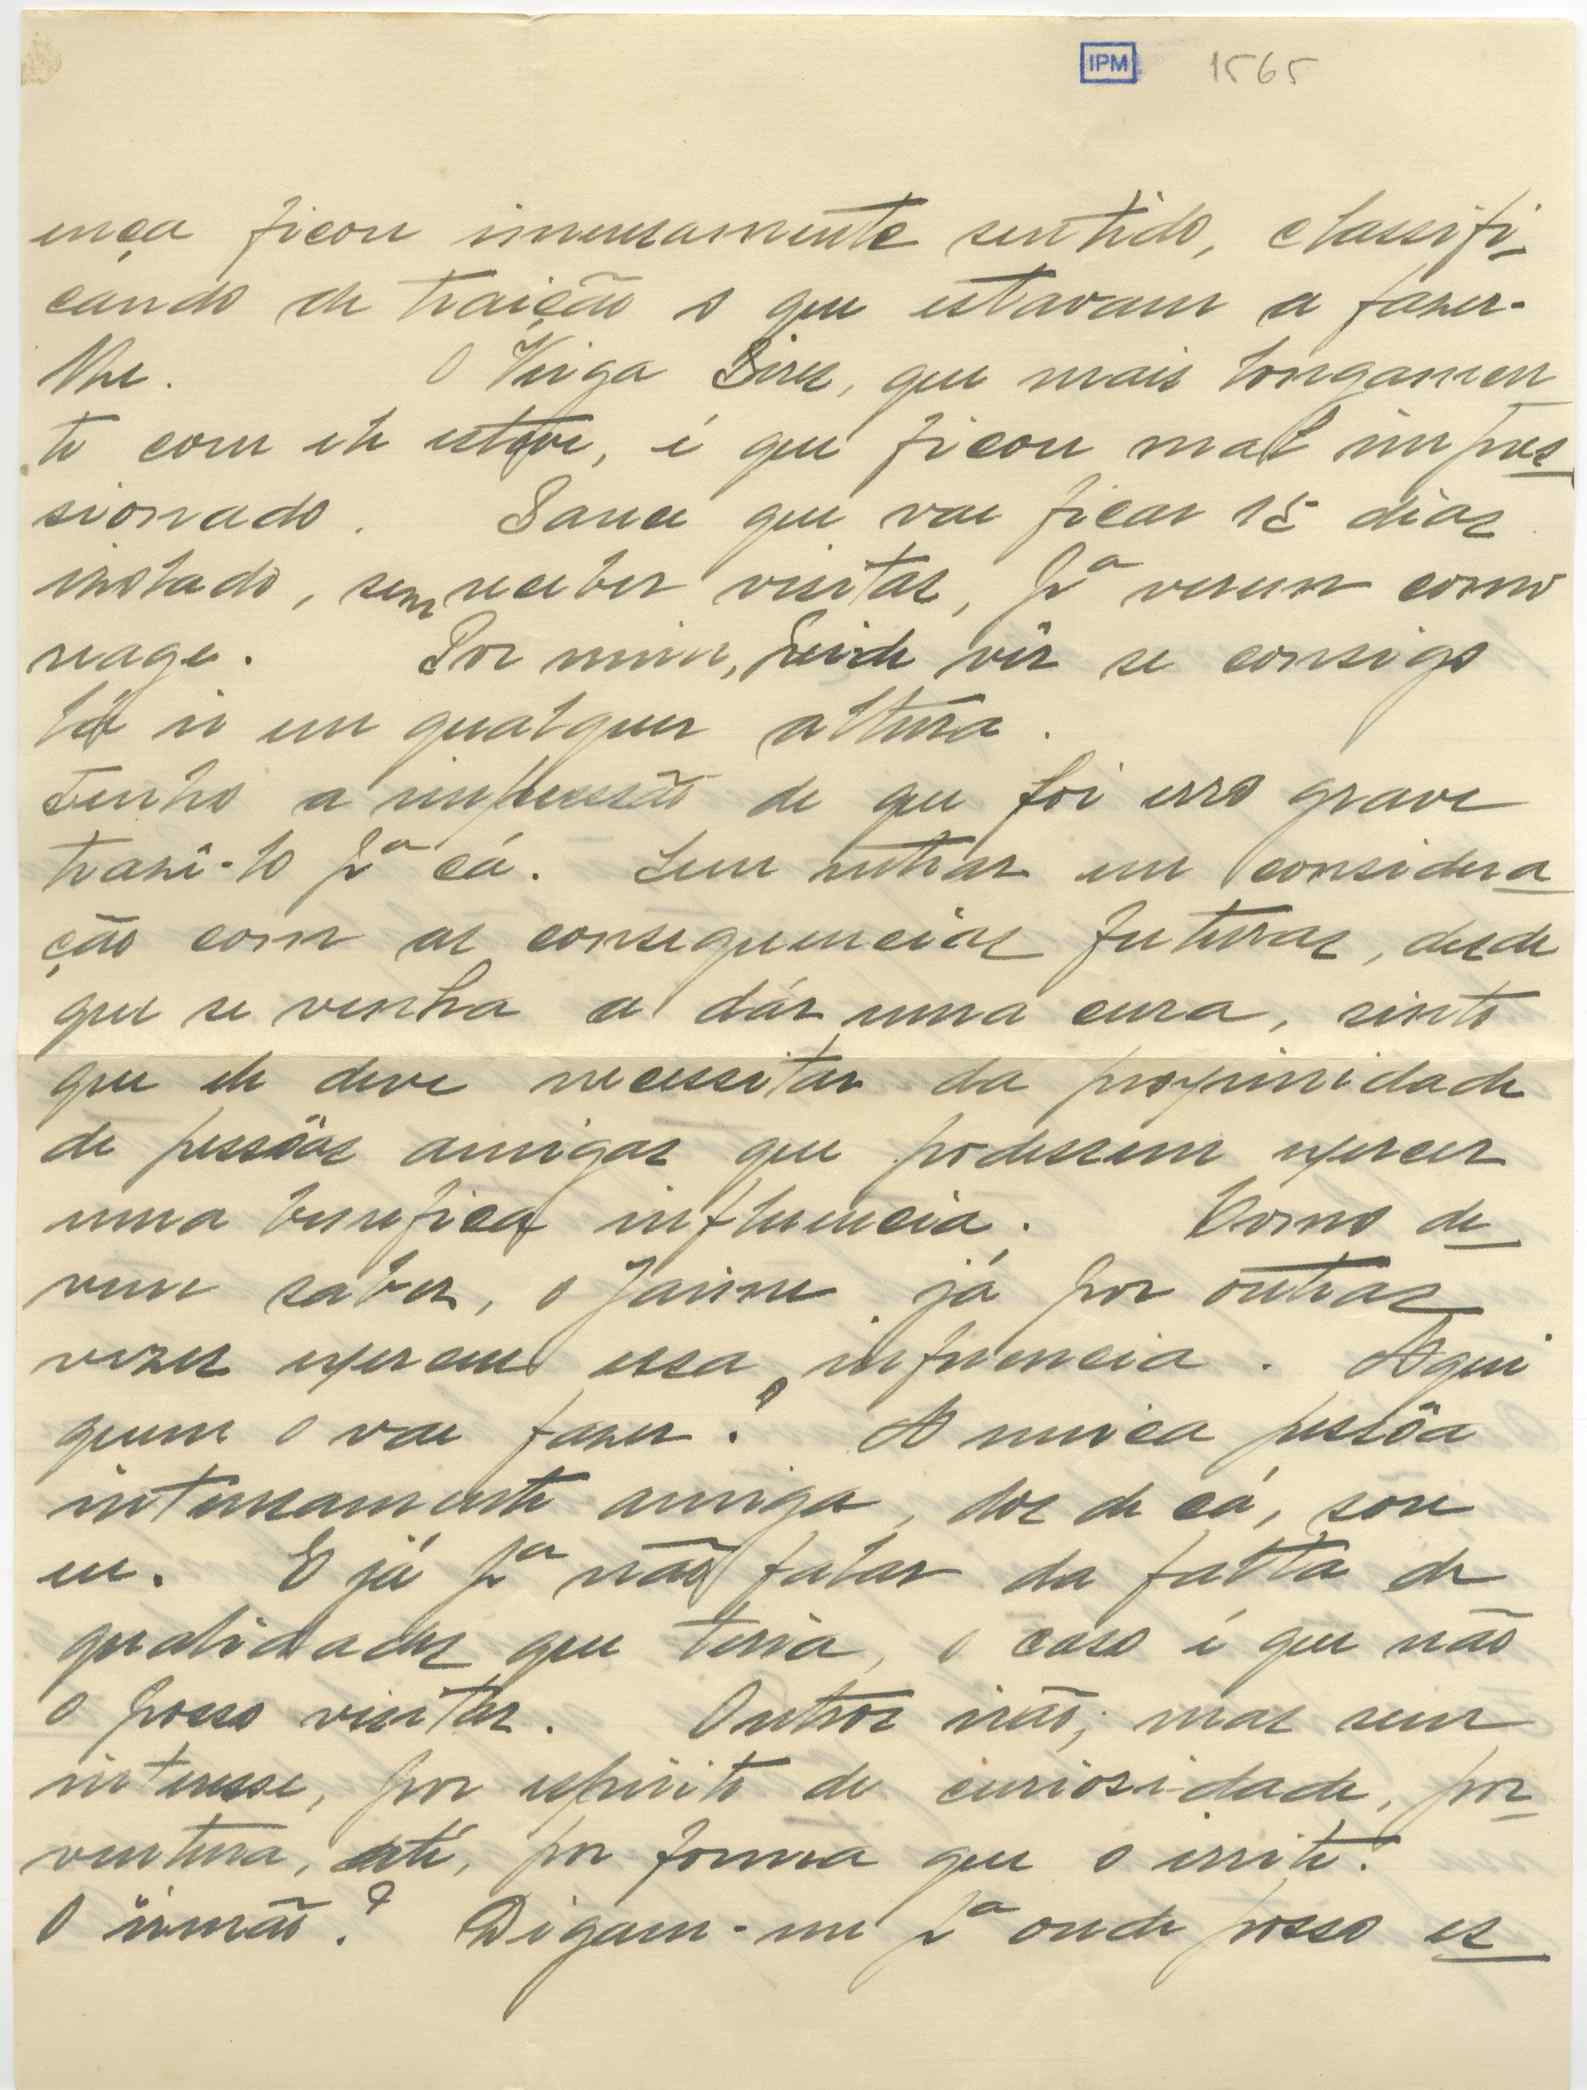 IPM 1565
ença ficou imensamente sentido, classifi-
cando de traição o que estavam a fazer-
lhe. O Veiga Pires, que mais longamen
te com ele esteve, é que ficou mal impres
sionado. Parece que vae ficar 15 dias
isolado, sem receber visitas, pª verem como
reage. Por mim, hei de vêr se consigo
lá ir em qualquer altura.
Tenho a impressão de que foi erro grave
trazê-lo pª cá. Sem entrar em considera
ção com as consequencias futuras, desde
que se venha a dár uma cura, sinto
que ele deve necessitar da proximidade
de pessôas amigas que podessem exercer
uma benefica influencia. Como de
vem saber, o Jaime já por outras
vezes exerceu essa influencia. Aqui
quem o vae fazer? A unica pessôa
intensamente amiga, dos de cá, sou
eu. E já pª não falar da falta de
qualidades que teria, o caso é que não
o posso visitar. Outros irão; mas sem
interesse, por espirito de curiosidade, por
ventura, até, por forma que o irrite.
O irmão? Digam-me pª onde posso es